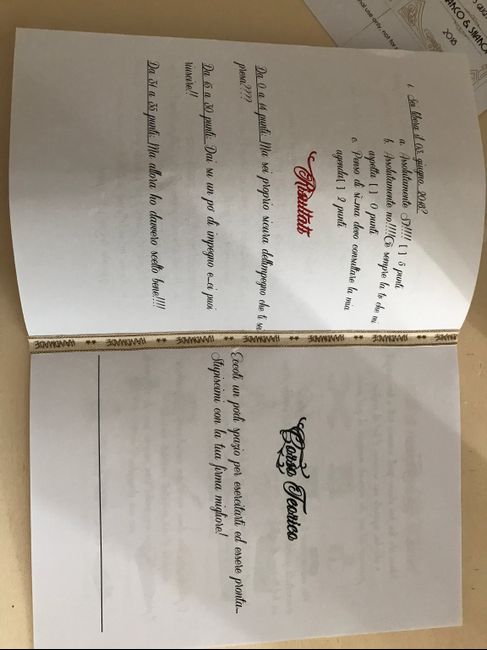 1. Sei libera il 03 giugno 2018?
a. Assolutamente SI!!!! [ ] 5 punti
b. Assolutamente no!!!!C'è sempre la tv che mi
aspetta [ ] 0 punti
c. Penso di si..ma devo consultare la mia
agenda[ ] 2 punti
Risultati
Da 0 a 14 punti..Ma sei proprio sicura dell'impegno che ti sei
presa????
Da 15 a 30 punti...Dai su un po' di impegno e...ci puoi
riuscire!!
Da 31 a 35 punti..Ma allora ho davvero scelto bene!!!!
Corso Teorico
Eccoti un po'di spazio per esercitarti ed essere pronta...
Stupiscimi con la tua firma migliore!
2018